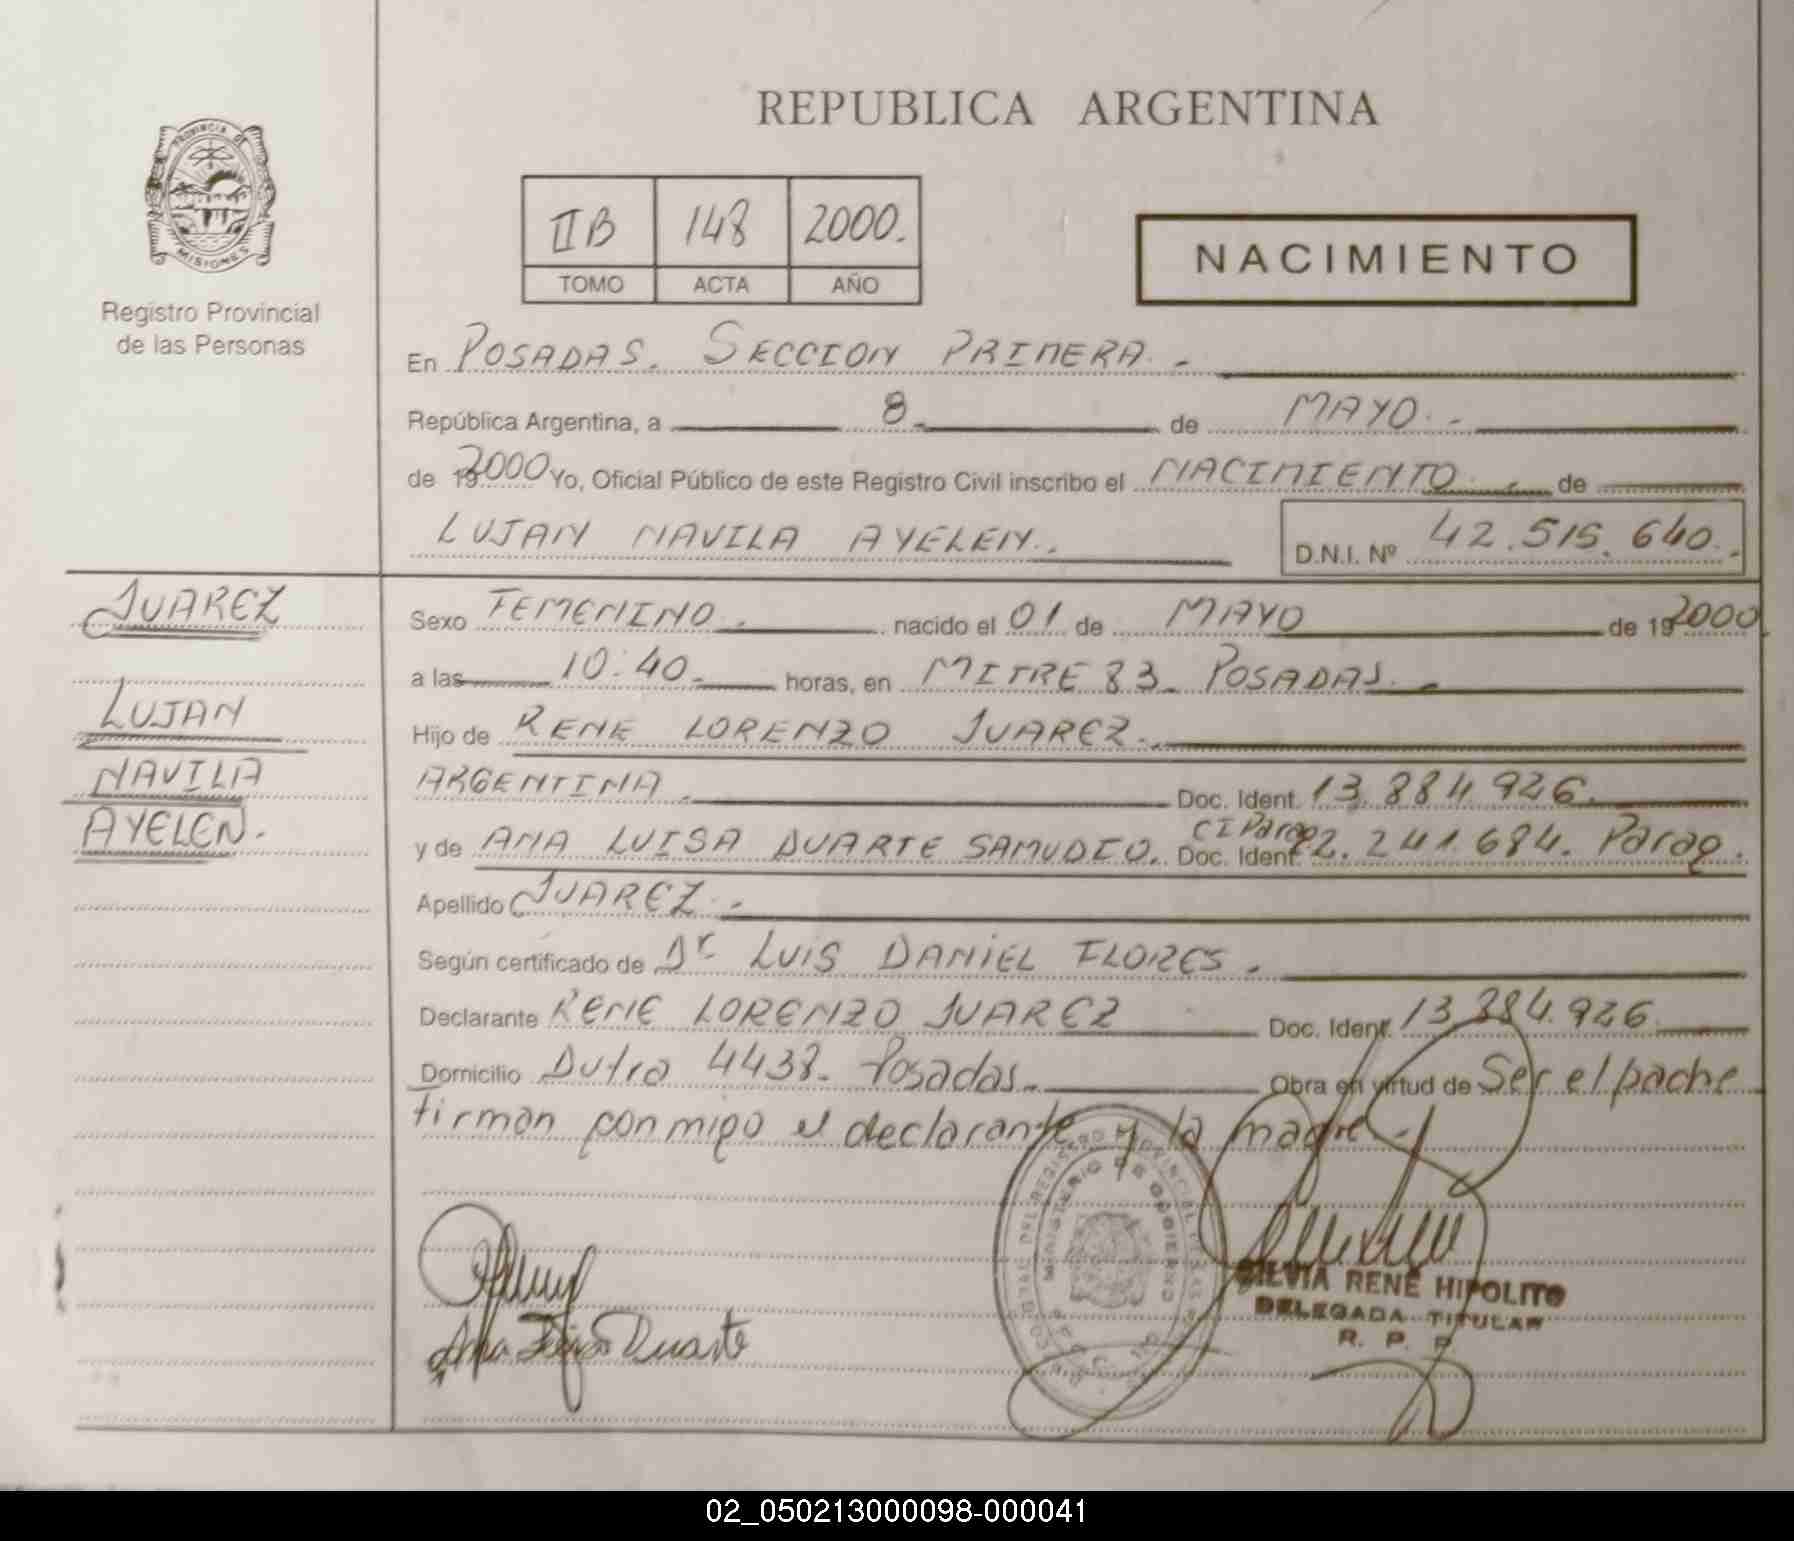 REPUBLICA ARGENTINA
PROVINCIA DE MISIONES
Registro Provincial
de las Personas
IIB 148 2000.
TOMO ACTA AÑO
NACIMIENTO
En POSADAS. SECCION PRIMERA.-
República Argentina, a 8 de MAYO.-
de 192000 Yo, Oficial Público de este Registro Civil inscribo el NACIMIENTO de
LUJAN NAVILA AYELEN.
D.N.I. Nº 42.515.640.
JUAREZ
LUJAN
NAVILA
AYELEN.
Sexo FEMENINO. nacido el 01 de MAYO de 192000
a las 10:40. horas, en MITRE 83. POSADAS.-
Hijo de RENE LORENZO JUAREZ.
ARGENTINA. Doc. Ident. 13.884.926.
y de ANA LUISA DUARTE SAMUDIO. Doc. Ident. CI Parag 2.241.684. Parag.
Apellido JUAREZ.-
Según certificado de Dr LUIS DANIEL FLORES.
Declarante RENE LORENZO JUAREZ Doc. Ident. 13.884.926
Domicilio Dutra 4438. Posadas. Obra en virtud de Ser el padre
firman conmigo el declarante y la madre.
Duarte
SILVIA RENE HIPOLITO
DELEGADA TITULAR
R. P. P.
MINISTERIO DE GOBIERNO
02_050213000098-000041